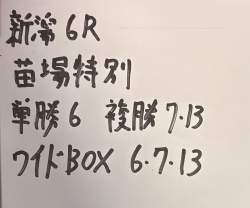 新潟6R
苗場特別
単勝6 複勝7.13
ワイドBOX 6.7.13